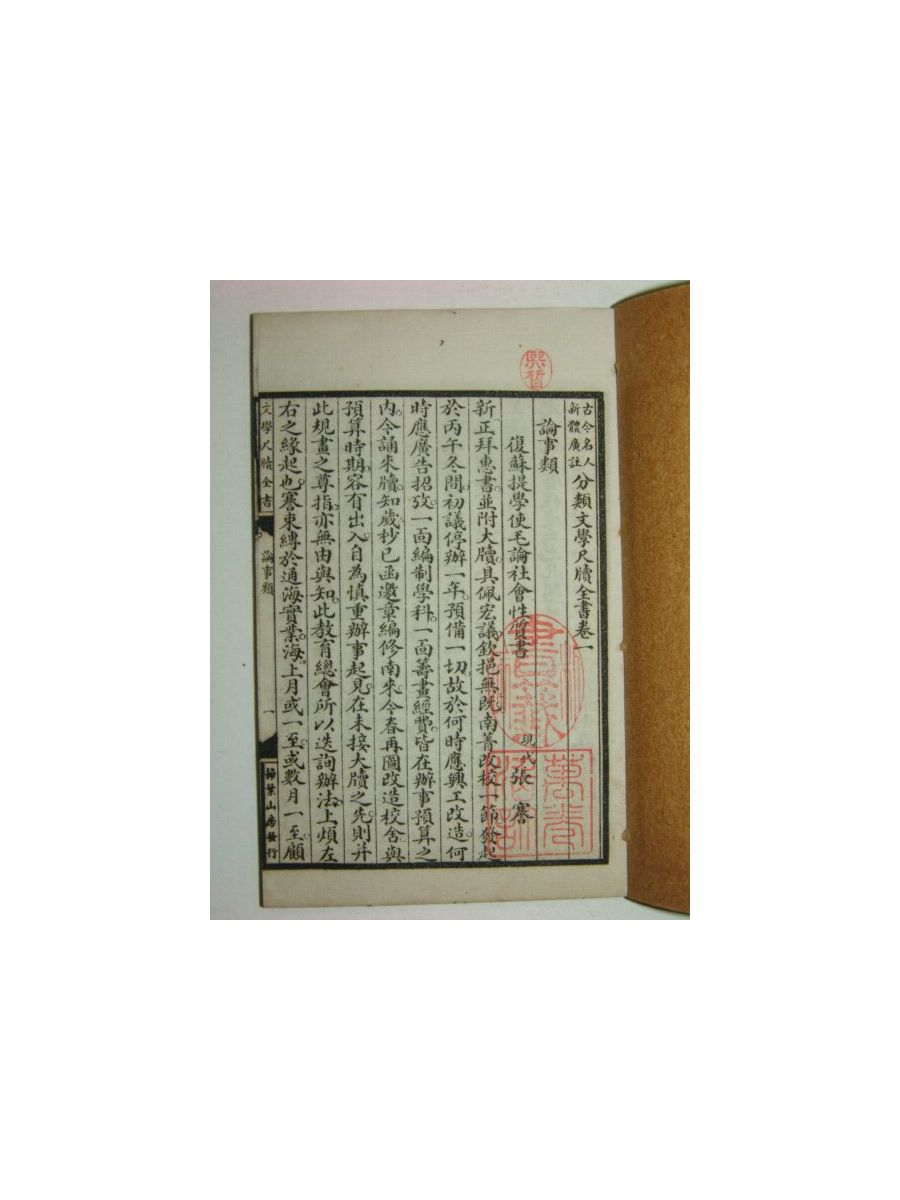 古今名人新體廣註分類文學尺牘全書卷一
論事類
復蘇提學使毛論社會性質書
現代張謇
新正拜惠書並附大牘具佩宏議欽挹無既南菁改校一節發起
於丙午冬間初議停辦一年預備一切故於何時應興工改造何
時應廣告招攷一面編制學科一面籌畫經費皆在辦事預算之
內今誦來牘知歲杪已函邀章編修南來今春再圖改造校舍與
預算時期容有出入自為慎重辦事起見在未接大牘之先則并
此規畫之尊指亦無由與知此教育總會所以迭詢辦法上煩左
右之緣起也謇束縛於通海實業海上月或一至或數月一至顧
文學尺牘全書
論事類
一
掃葉山房發行
熙哲